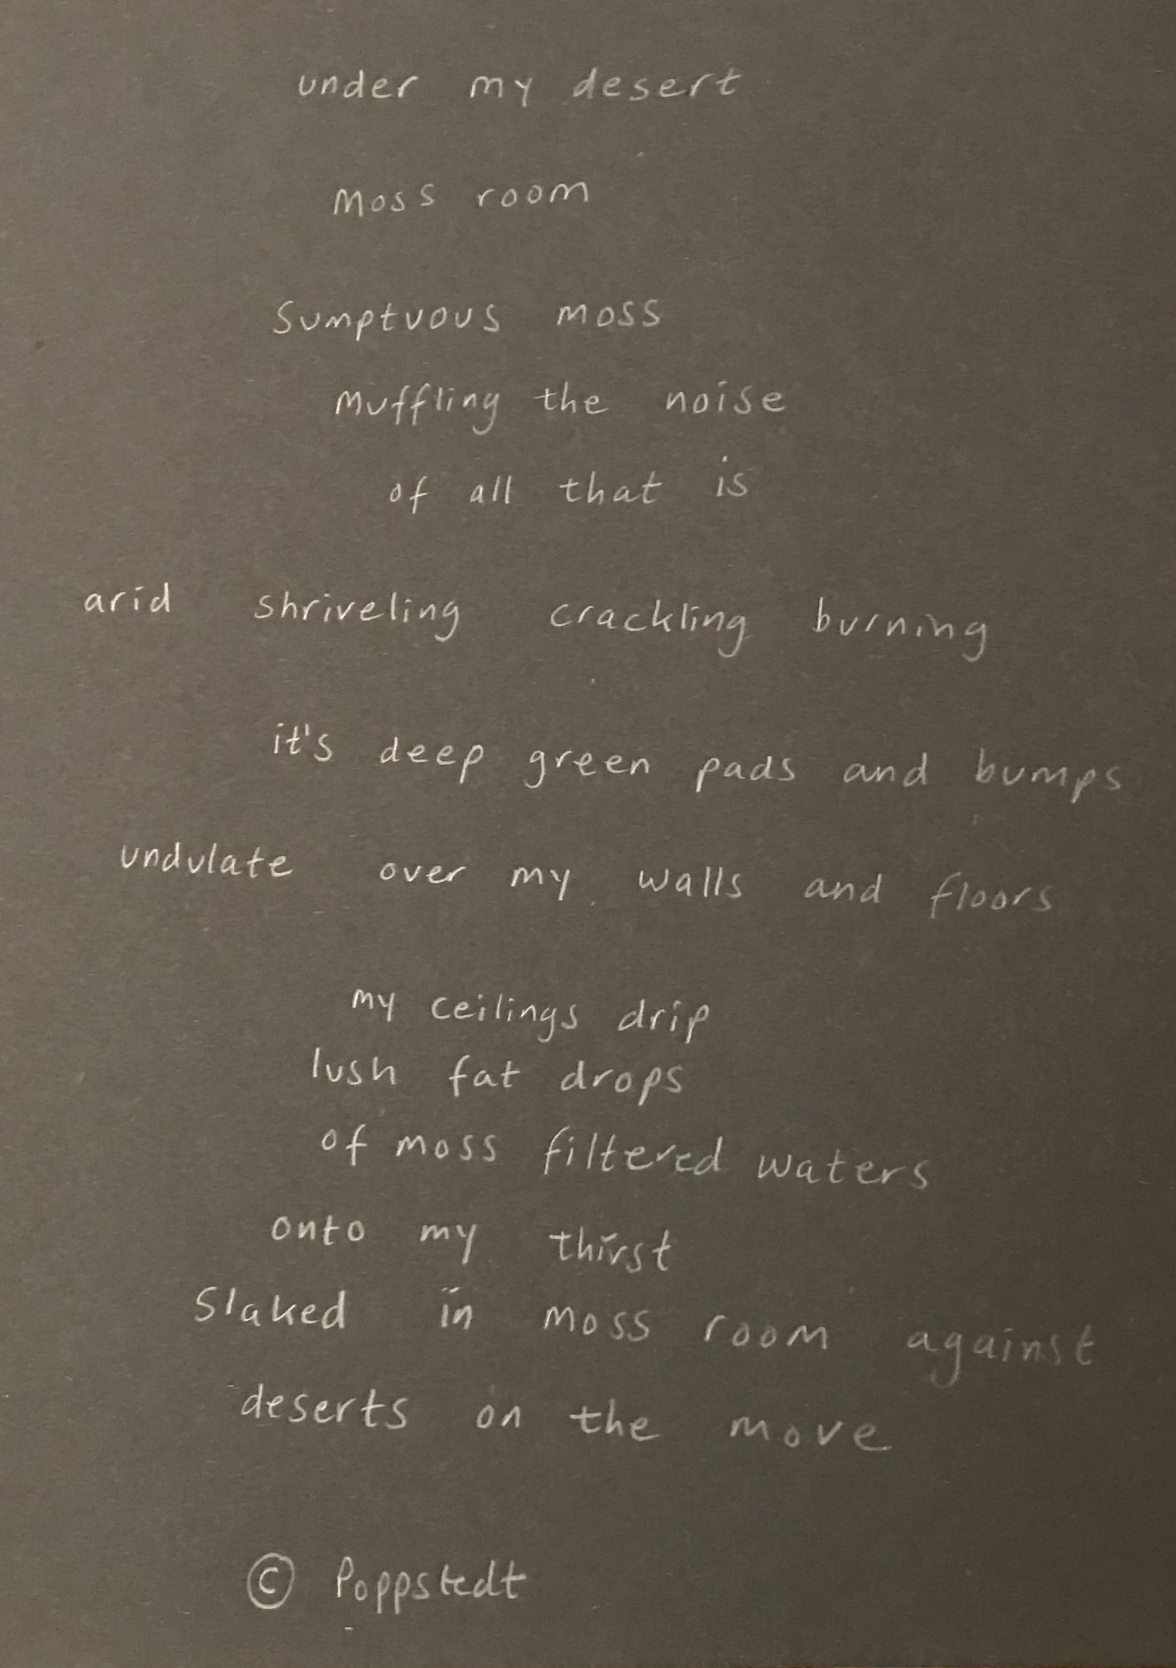 under my desert
Moss room
Sumptuous moss
Muffling the noise
of all that is
arid shriveling crackling burning
it's deep green pads and bumps
undulate over my walls and floors
my ceilings drip
lush fat drops
of moss filtered waters
onto my thirst
Slaked in moss room against
deserts on the move
© Poppstedt